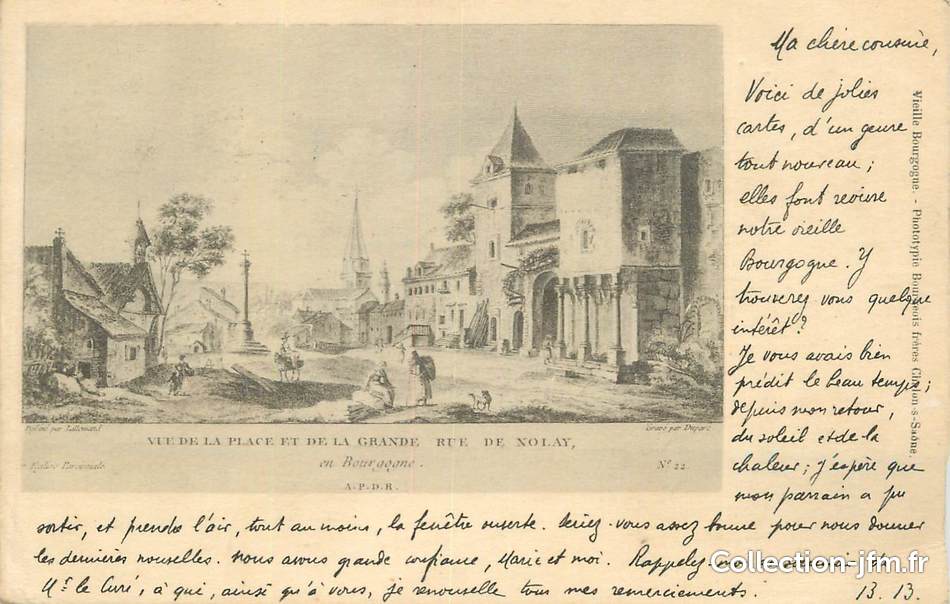 Ma chère cousine,
Voici de jolies
cartes, d'un genre
tout nouveau;
elles font revivre
notre vieille
Bourgogne. Y
trouverez vous quelque
intérêt?
Je vous avais bien
prédit le beau temps;
depuis mon retour,
du soleil et de la
chaleur; j'espère que
mon parrain a pu
sortir, et prendre l'air, tout au moins, la fenêtre ouverte. Seriez-vous assez bonne pour nous donner
les dernières nouvelles. Nous avons grande confiance, Marie et moi. Rappelez-moi
Mr le Curé, à qui, ainsi qu'à vous, je renouvelle tous mes remerciements. B. B.
Vieille Bourgogne. - Phototypie Bourgeois frères Châlon-s-Saône.
Dessiné par Lallemand
Gravé par Duparc
VUE DE LA PLACE ET DE LA GRANDE RUE DE NOLAY,
en Bourgogne.
Eglise Paroissiale
No. 22
A.P.D.R.
Collection-jfm.fr